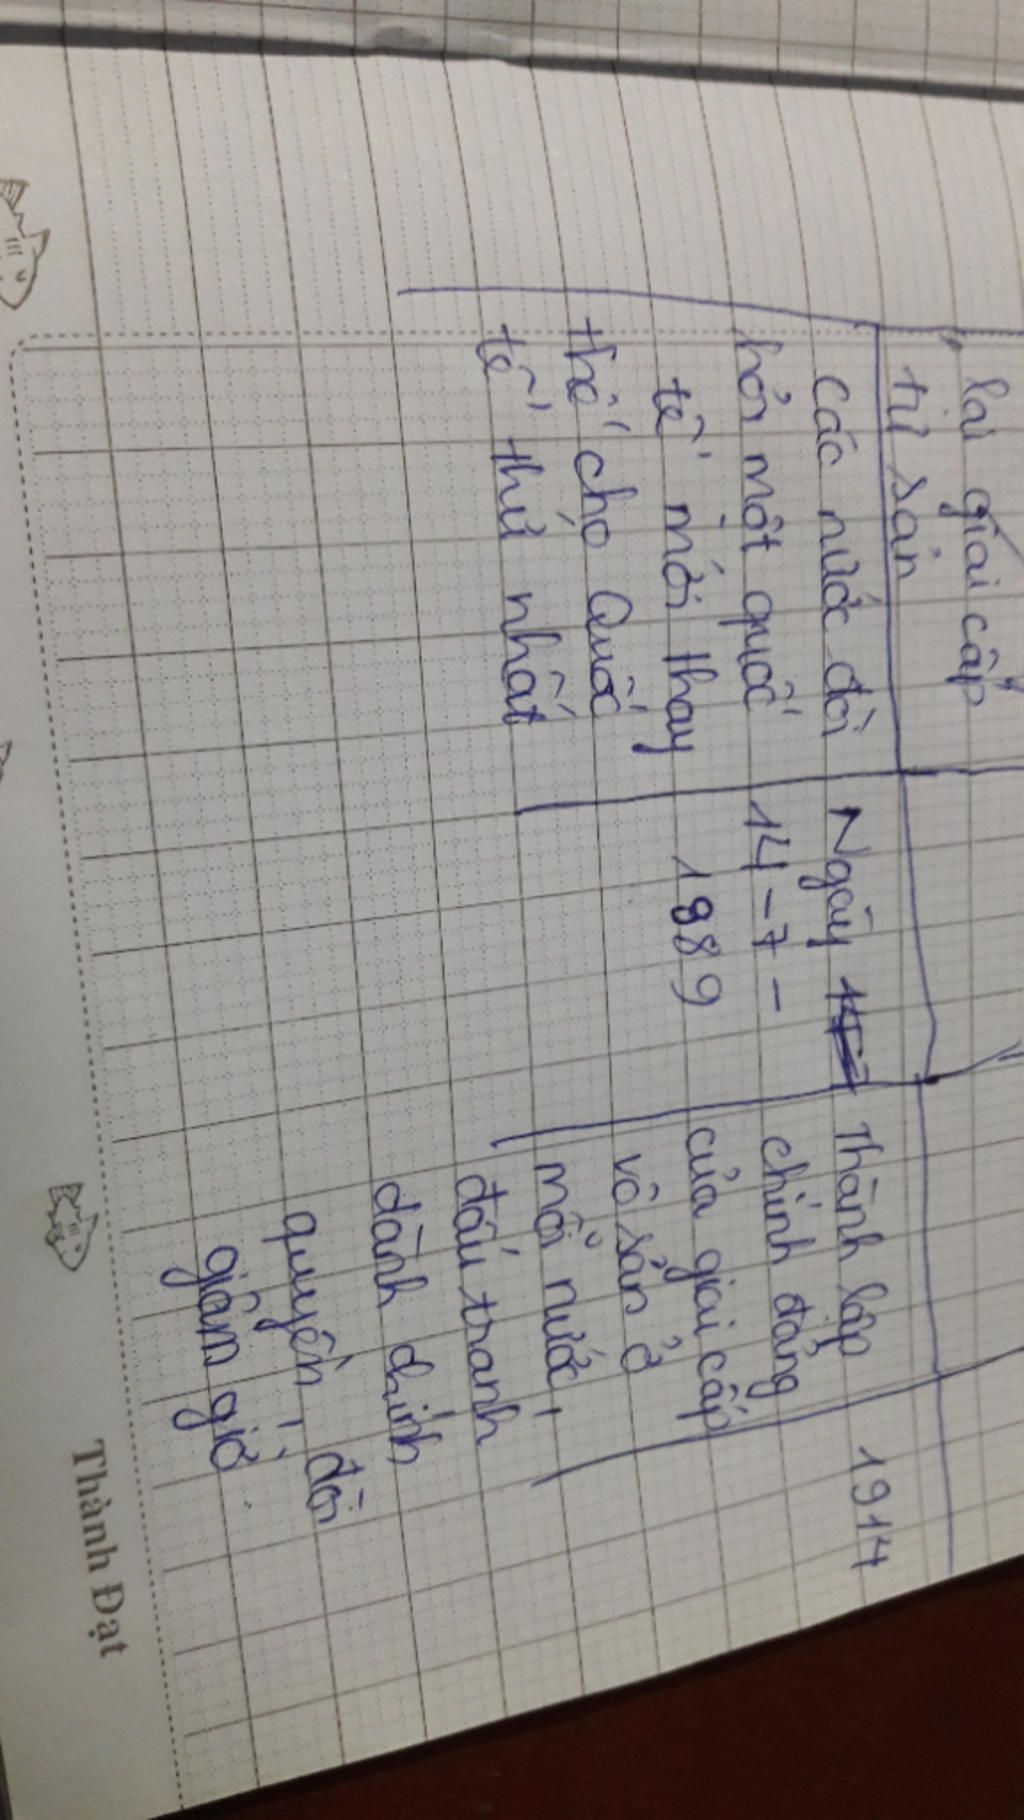 lại giai cấp
tư sản
các nước đòi
hỏi một quốc
tế mới thay
thế cho Quốc
tế thứ nhất
Ngày
14-7-
1989
Thành lập
chính đảng
của giai cấp
vô sản ở
mỗi nước,
đấu tranh
dành chính
quyền, đòi
giảm giờ
1914
Thành Đạt